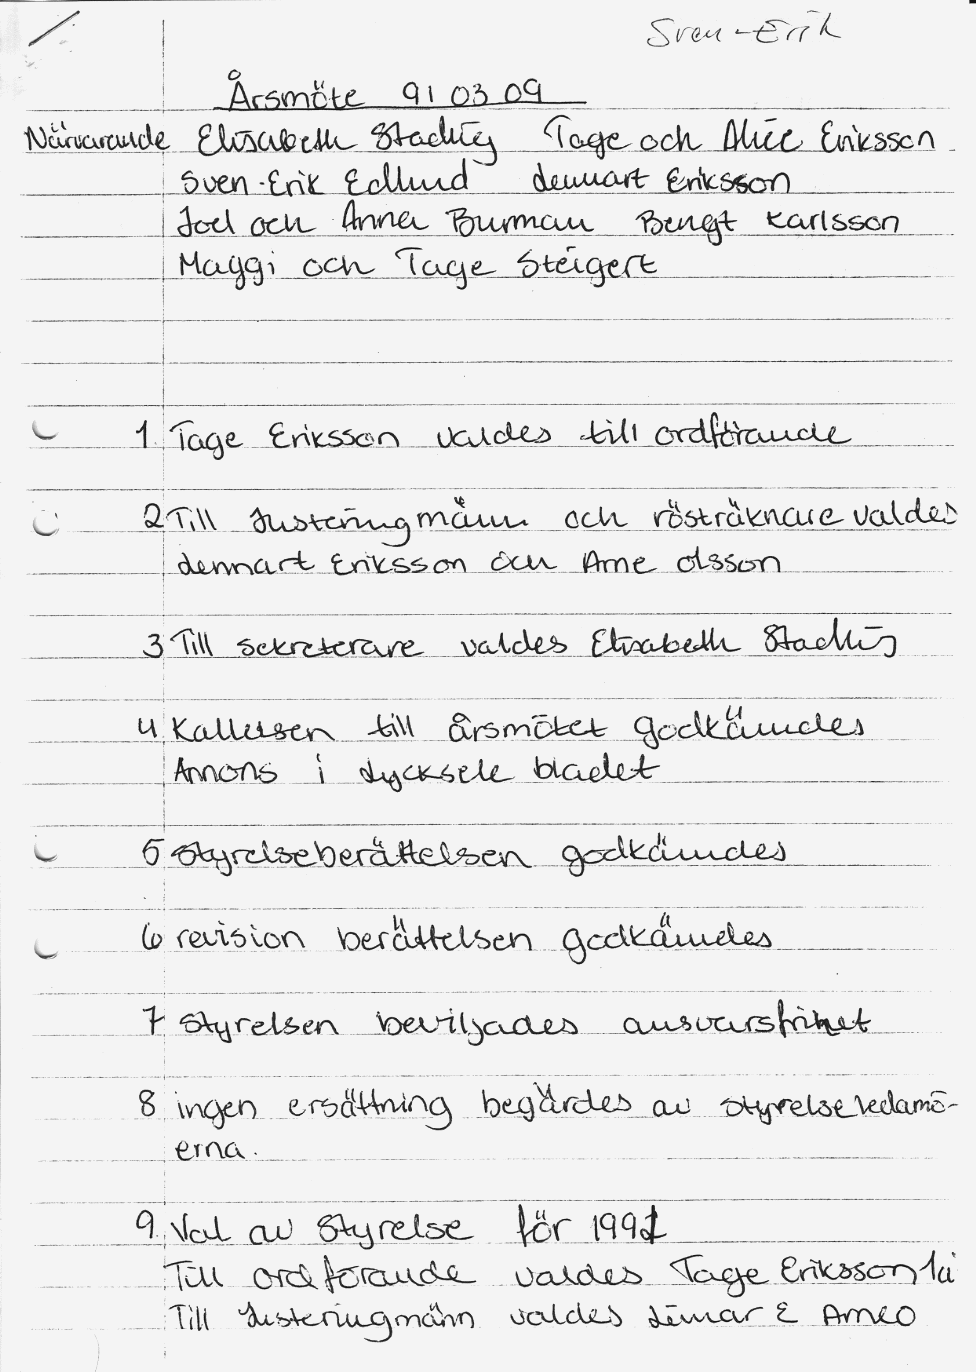 Sven-Erik
Årsmöte 91 03 09
Närvarande Elisabeth Stadig Tage och Alice Eriksson
Sven-Erik Edlund Lennart Eriksson
Joel och Anna Burman Bengt Karlsson
Maggi och Tage Steigert
1 Tage Eriksson valdes till ordförande
2 Till Justeringmänn och rösträknare valdes
Lennart Eriksson och Arne Olsson
3 Till sekreterare valdes Elisabeth Stadig
4 Kallelsen till årsmötet godkändes
Annons i Lycksele bladet
5 Styrelseberättelsen godkändes
6 revision berättelsen godkändes
7 Styrelsen beviljades ansvarsfrihet
8 ingen ersättning begärdes av styrelseledamö-
erna.
9. Val av Styrelse för 1991
Till ordförande valdes Tage Eriksson
Till Justeringmänn valdes E Arne O